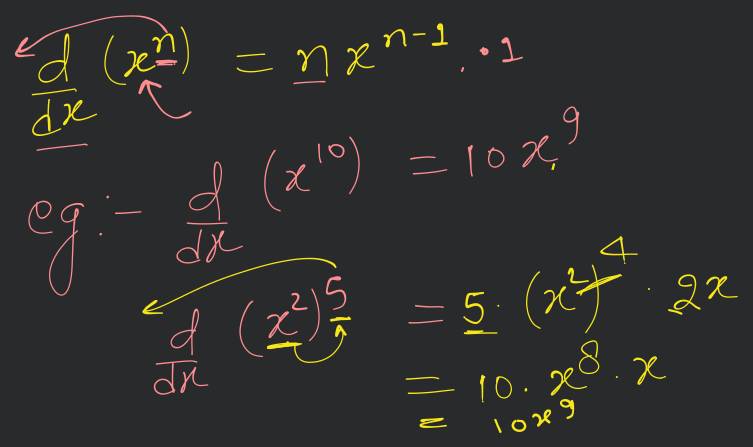 d/dx (xⁿ) = n xⁿ⁻¹ . · 1
eg :- d/dx (x¹⁰) = 10 x⁹
d/dx (x²)⁵ = 5 · (x²)⁴ · 2x
= 10 · x⁸ · x
= 10x⁹